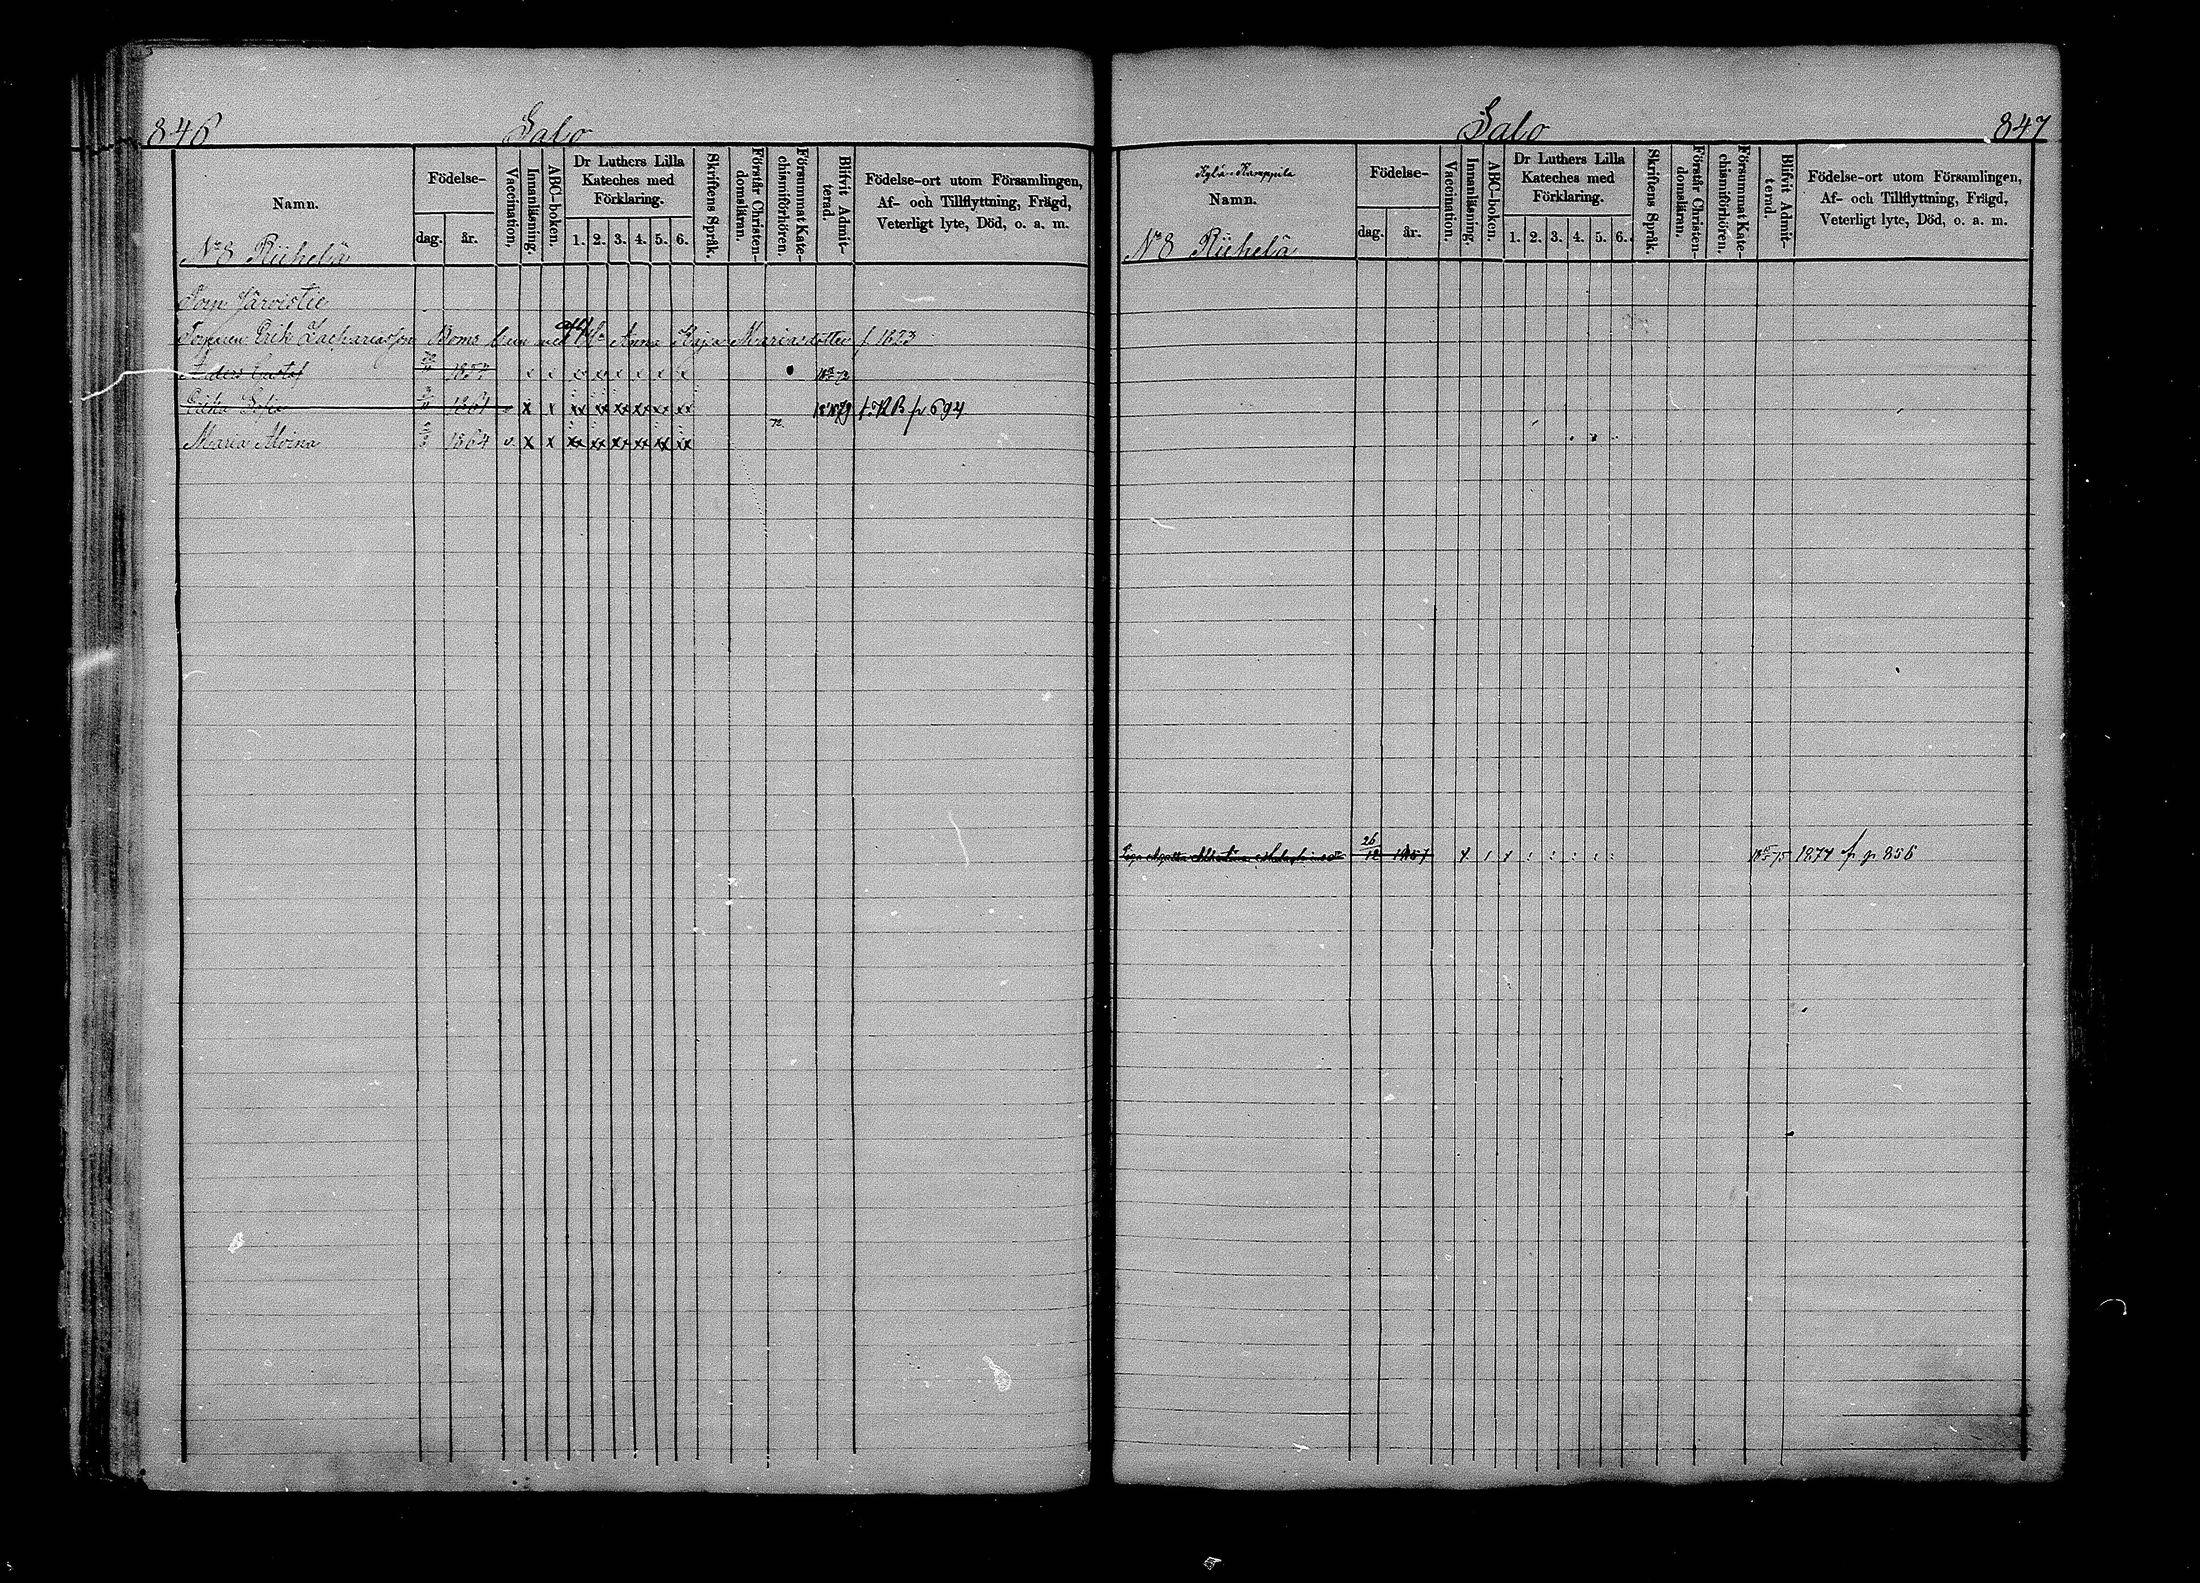 846
Salo
Namn.
Födelse-
dag.
år.
Vaccination.
Innanläsning.
ABC-boken.
Dr Luthers Lilla
Kateches med
Förklaring.
1. 2. 3. 4. 5. 6.
Skriftens Språk.
Förstår Christen-
domsläran.
Försummat Kate-
chismiförhören.
Blifvit Admit-
terad.
Födelse-ort utom Församlingen,
Af- och Tillflyttning, Frägd,
Veterligt lyte, Död, o. a. m.
No 8 Riihelä
Torp Järvistie
Torparen Erik Zachariasson Anna Kaja Mariasdotter f. 1823
Anders Gustaf 1857
Erika Sofia 1861 v x x xx xx xx xx xx xx 1879 f. KB p 694
Maria Alvina 1864 v x x xx xx xx xx xx xx
Salo
847
Kylä-Kamppila
Namn.
Födelse-
dag.
år.
Vaccination.
Innanläsning.
ABC-boken.
Dr Luthers Lilla
Kateches med
Förklaring.
1. 2. 3. 4. 5. 6.
Skriftens Språk.
Förstår Christen-
domsläran.
Försummat Kate-
chismiförhören.
Blifvit Admit-
terad.
Födelse-ort utom Församlingen,
Af- och Tillflyttning, Frägd,
Veterligt lyte, Död, o. a. m.
No 8 Riihelä
Agatta Albertina 26/12 1857 1874 fr p 856